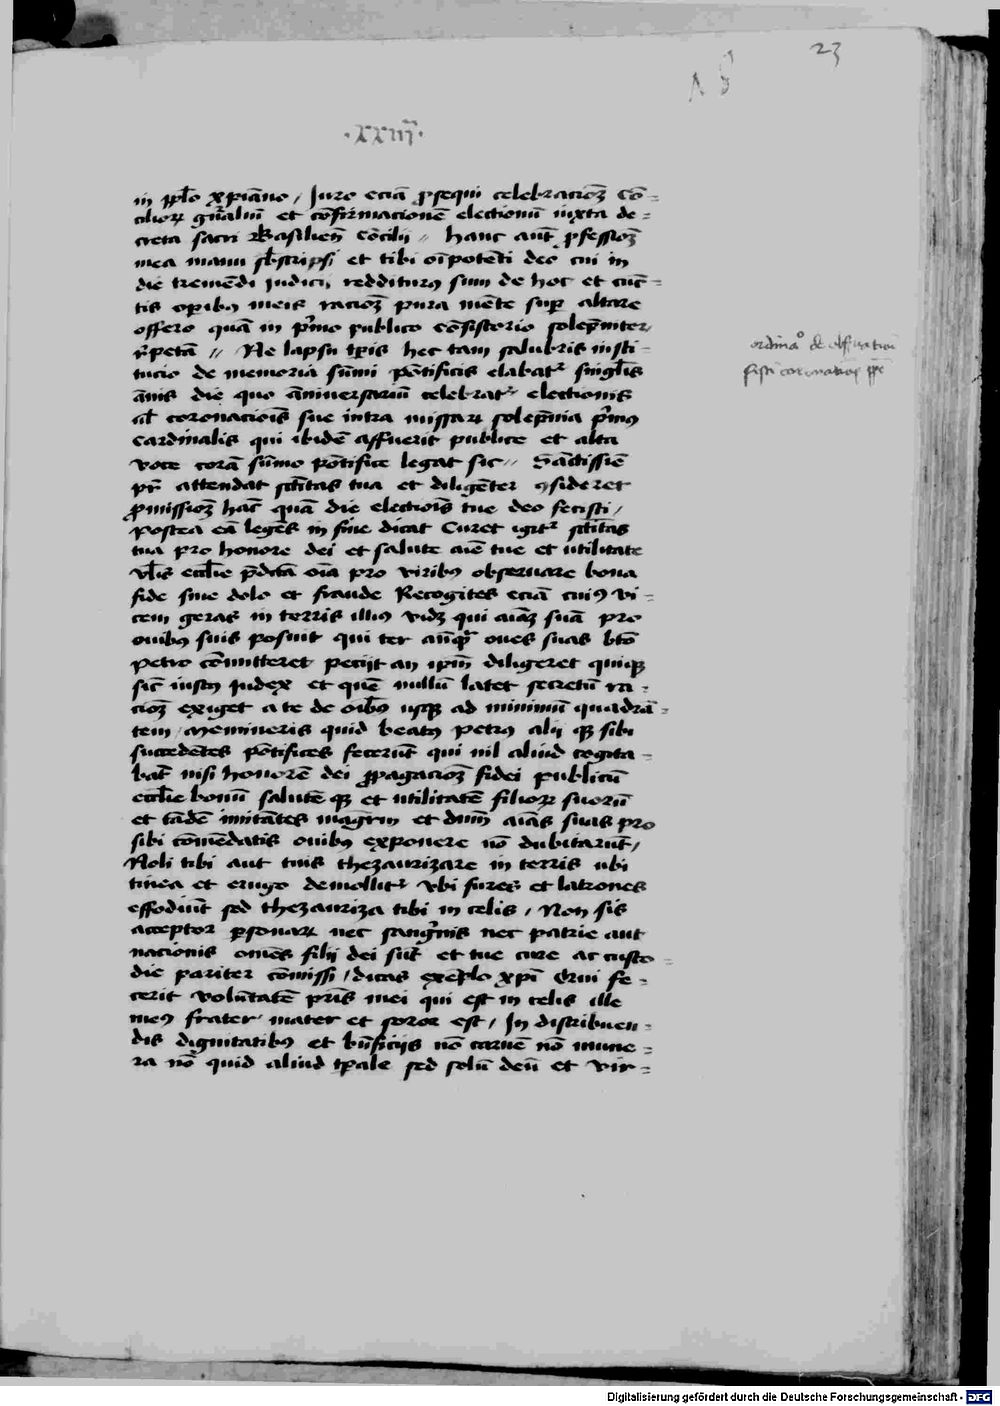 23
18
·xxiii·
in pplo xpiano / Juro eciã ꝓsequi celebracioꝫ cõ-
cilioꝝ gñraliũ et cõfirmacionẽ electionũ iuxta de-
creta sacri Basilieñ Cõcilij // hanc aũt ꝓfessioꝫ
mea manu sb̃scripsi et tibi oĩpotẽti deo cui in
die tremẽdi judicij redditurꝰ sum de hoc et cũc-
tis oꝑibꝰ meis racioꝫ pura mẽte suꝑ altare
offero quã in p̃mo publico cõsistorio solẽpniter /
r̃petã // Ne lapsu tꝑis hec tam salubris insti-
tucio de memoria sũmi põtificis elabatr singl̃is
ãnis die quo ãniversariũ celebratr electionis
al̃ coronaciois sue intra missaꝝ solẽpnia p̃mꝰ
Cardinalis qui ibidẽ affuerit publice et alta
voce corã sũmo põtifice legat sic // Sãctissiẽ
pr̃ attendat sctĩtas tua et diligẽter ꝯsideret
ꝓmissioꝫ hãc quã die electiois tue deo fecisti /
Postea eã legẽs in fine dicat Curet igitr sctĩtas
tua pro honore dei et salute aiẽ tue et utilitate
vl̃is eccl̃ie p̃dc̃ta oĩa pro viribꝰ observare bona
fide sine dolo et fraude Recogites eciã cuiꝰ vi-
cem geras in terris illiꝰ vidꝫ qui aiãꝫ suã pro
ovibꝰ suis posuit qui ter añqꝫ oves suas bt̃o
Petro cõmitteret petijt an ip̃m diligeret quiqꝫ
sic iustꝰ judex et quẽ nullũ latet secretũ ra-
cioꝫ exiget a te de oĩbꝰ usqꝫ ad minimũ quadrã-
tem / Memineris quid beatꝰ Petrꝰ alij qꝫ sibi
succedẽtes põtifices fecerũt qui nil aliud cogita-
bãt nisi honorẽ dei ꝓpagacioꝫ fidei publicũ
eccl̃ie bonũ salutẽ qꝫ et utilitatẽ filioꝝ suorũ
et tãdẽ imitãtes magr̃m et dñm aiãs suas pro
sibi cõmẽdatis ovibꝰ exponere nõ dubitarũt /
Noli tibi aut tuis thezaurizare in terris ubi
tinea et erugo demollitr Vbi fures et latrones
effodiũt sed thezauriza tibi in celis / Non sis
acceptor ꝑsonaꝝ nec sang̃nis nec patrie aut
nacionis omẽs filij dei sũt et tue cure ac custo-
die pariter cõmissi / dicas exẽplo xp̃i Qui fe-
cerit volũtatẽ pr̃is mei qui est in celis ille
meꝰ frater mater et soror est / In distribuen-
dis dignitatibꝰ et bñficijs nõ carnẽ nõ mune-
ra nõ quid aliud tꝑale sed solũ deũ et vir-
Digitalisierung gefördert durch die Deutsche Forschungsgemeinschaft - DFG